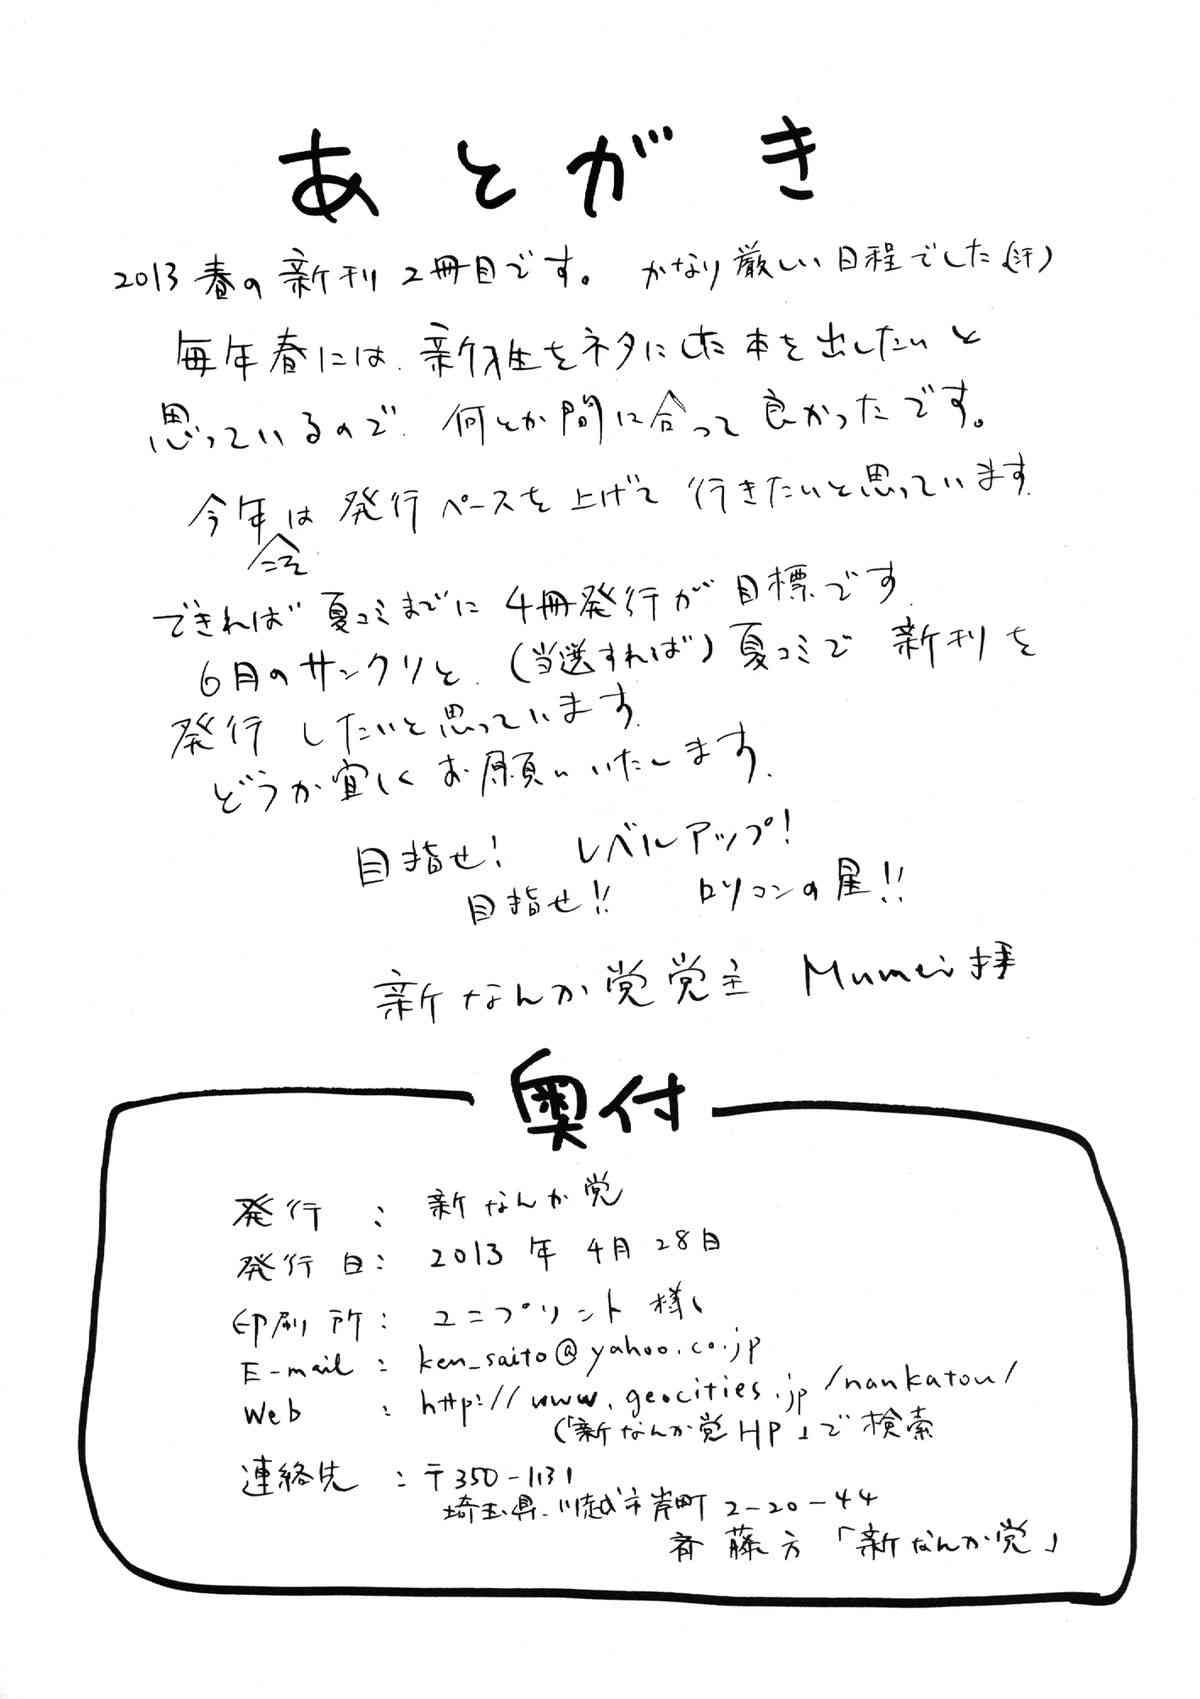 あとがき
2013春の新刊2冊目です。 かなり厳しい日程でした(汗)
毎年春には、新入生をネタにした本を出したいと
思っているので、何とか間に合って良かったです。
今年は発行ペースを上げて行きたいと思っています。
こそ
できれば夏コミまでに4冊発行が目標です。
6月のサンクリと、(当選すれば)夏コミで新刊を
発行したいと思っています。
どうか宜しくお願いいたします。
目指せ! レベルアップ!
目指せ!! ロリコンの星!!
新なんか党党主 Mumei拝
奥付
発行 : 新なんか党
発行日: 2013年4月28日
印刷所: ユニプリント様
E-mail : ken_saito@yahoo.co.jp
Web : http://www.geocities.jp/nankatou/
(「新なんか党HP」で検索
連絡先 : 〒350-1131
埼玉県川越市岸町2-20-44
斉藤方「新なんか党」